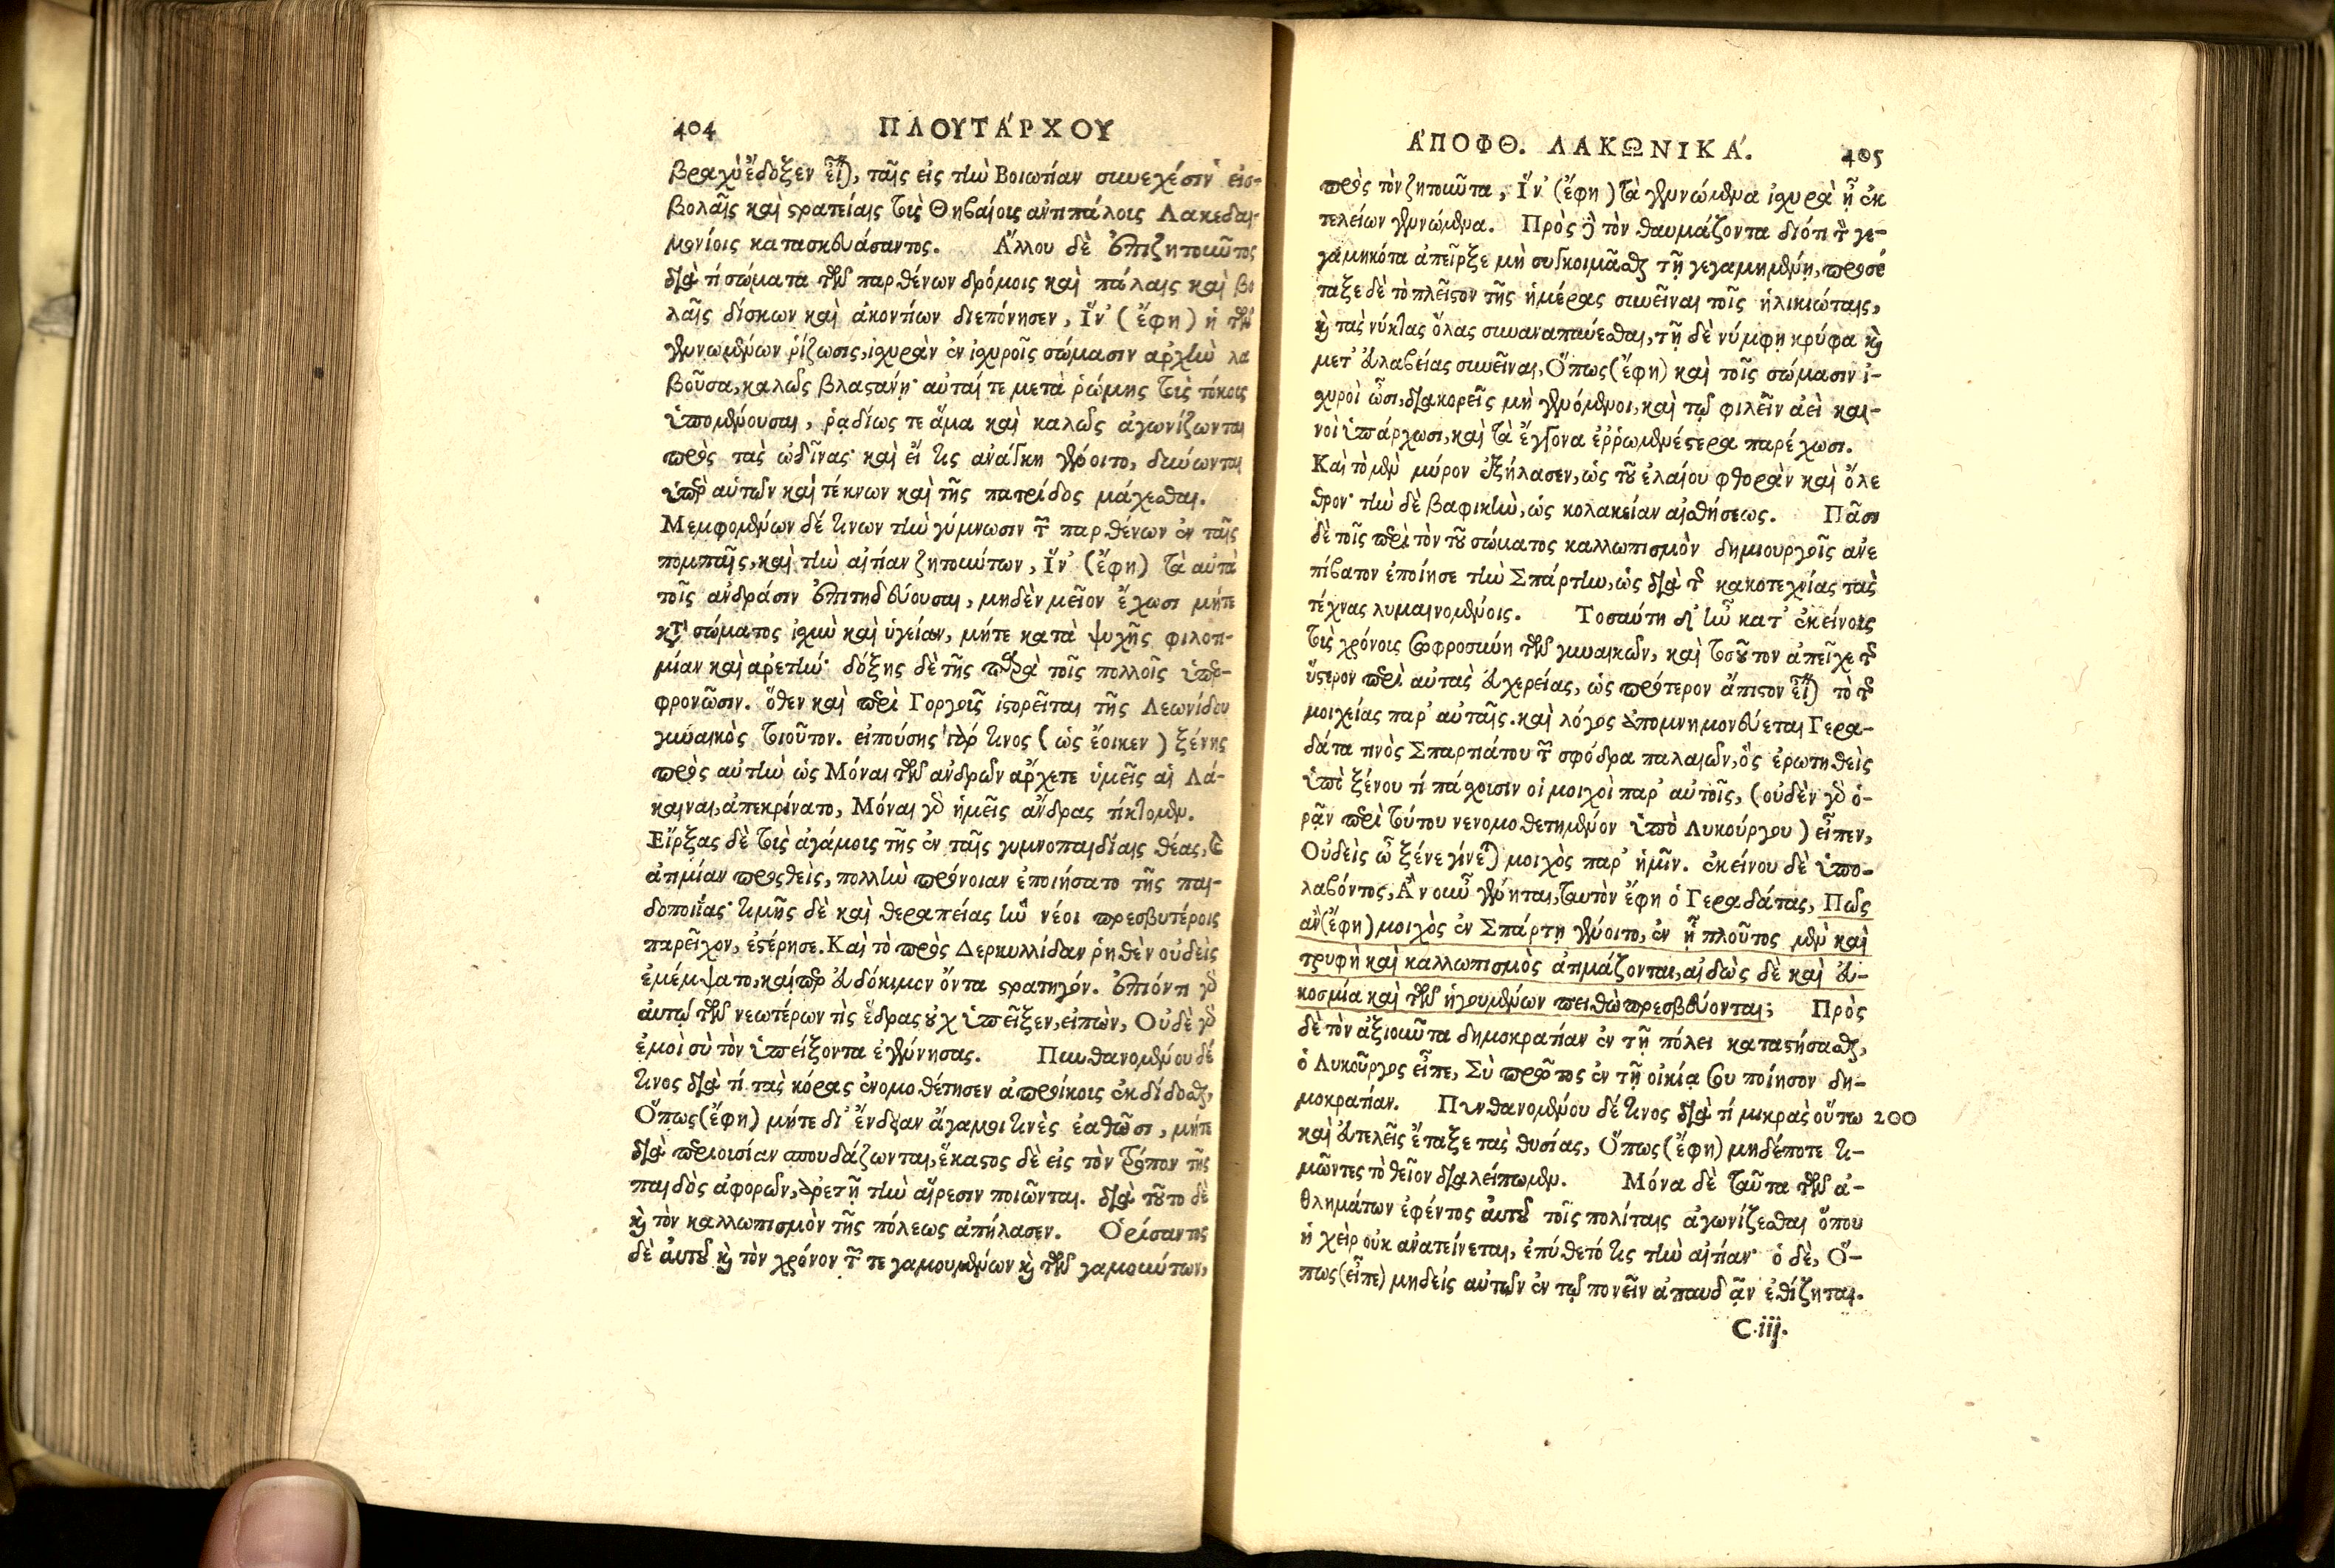 404 ΠΛΟΥΤΑΡΧΟΥ
βραχὺ ἔδοξεν εἶναι, ταῖς εἰς τὴν Βοιωτίαν συνεχέσιν εἰσ-
βολαῖς καὶ στρατείαις τοῖς Θηβαίοις ἀντιπάλοις Λακεδαι-
μονίοις κατασκευάσαντος. Ἄλλου δὲ ἐπιζητοῦντος
διὰ τί σώματα τῶν παρθένων δρόμοις καὶ πάλαις καὶ βο
λαῖς δίσκων καὶ ἀκοντίων διεπόνησεν, Ἵν' (ἔφη) ἡ τῶν
γενωμένων ῥίζωσις, ἰσχυρὰν ἐν ἰσχυροῖς σώμασιν ἀρχὴν λα
βοῦσα, καλῶς βλαστάνῃ· αὐταί τε μετὰ ῥώμης τοῖς τόκοις
ὑπομένουσαι, ῥᾳδίως τε ἅμα καὶ καλῶς ἀγωνίζωνται
πρὸς τὰς ὠδῖνας· καὶ εἴ τις ἀνάγκη γένοιτο, δύνωνται
ὑπὲρ αὑτῶν καὶ τέκνων καὶ τῆς πατρίδος μάχεσθαι.
Μεμφομένων δέ τινων τὴν γύμνωσιν τῶν παρθένων ἐν ταῖς
πομπαῖς, καὶ τὴν αἰτίαν ζητούντων, Ἵν' (ἔφη) τὰ αὐτὰ
τοῖς ἀνδράσιν ἐπιτηδεύουσαι, μηδὲν μεῖον ἔχωσι μήτε
κατὰ σώματος ἰσχὺν καὶ ὑγείαν, μήτε κατὰ ψυχῆς φιλοτι-
μίαν καὶ ἀρετήν· δόξης δὲ τῆς παρὰ τοῖς πολλοῖς ὑπερ-
φρονῶσιν. ὅθεν καὶ περὶ Γοργοῦς ἱστορεῖται τῆς Λεωνίδου
γυναικὸς τοιοῦτον. εἰπούσης γάρ τινος (ὡς ἔοικεν) ξένης
πρὸς αὐτὴν ὡς Μόναι τῶν ἀνδρῶν ἄρχετε ὑμεῖς αἱ Λά-
καιναι, ἀπεκρίνατο, Μόναι γὰρ ἡμεῖς ἄνδρας τίκτομεν.
Εἴρξας δὲ τοὺς ἀγάμους τῆς ἐν ταῖς γυμνοπαιδίαις θέας, καὶ
ἀτιμίαν προσθεὶς, πολλὴν πρόνοιαν ἐποιήσατο τῆς παι-
δοποιΐας· τιμῆς δὲ καὶ θεραπείας ἣν νέοι πρεσβυτέροις
παρεῖχον, ἐστέρησε. Καὶ τὸ πρὸς Δερκυλλίδαν ῥηθὲν οὐδεὶς
ἐμέμψατο, καίπερ εὐδόκιμον ὄντα στρατηγόν. ἐπιόντι γὰρ
αὐτῷ τῶν νεωτέρων τὶς ἕδρας οὐχ ὑπεῖξεν, εἰπὼν, Οὐδὲ γὰρ
ἐμοὶ σὺ τὸν ὑπείξοντα ἐγέννησας. Πυνθανομένου δέ
τινος διὰ τί τὰς κόρας ἐνομοθέτησεν ἀπροίκους ἐκδίδοσθαι,
Ὅπως (ἔφη) μήτε δι' ἔνδειαν ἄγαμοί τινὲς ἐαθῶσι, μήτε
διὰ περιουσίαν σπουδάζωνται, ἕκαστος δὲ εἰς τὸν τρόπον τῆς
παιδὸς ἀφορῶν, ἀρετῇ τὴν αἵρεσιν ποιῶνται. διὰ τοῦτο δὲ
καὶ τὸν καλλωπισμὸν τῆς πόλεως ἀπήλασεν. Ὁρίσαντος
δὲ αὐτοῦ καὶ τὸν χρόνον τῶν τε γαμουμένων καὶ τῶν γαμούντων,
ΑΠΟΦΘ. ΛΑΚΩΝΙΚΑ. 405
πρὸς τὸν ζητοῦντα, Ἵν' (ἔφη) τὰ γενώμενα ἰσχυρὰ ᾖ ἐκ
τελείων γενώμενα. Πρὸς δὲ τὸν θαυμάζοντα διότι τὸν γε-
γαμηκότα ἀπεῖρξε μὴ συγκοιμᾶσθαι τῇ γεγαμημένῃ, προσέ
ταξε δὲ τὸ πλεῖστον τῆς ἡμέρας συνεῖναι τοῖς ἡλικιώταις,
καὶ τὰς νύκτας ὅλας συναναπαύεσθαι, τῇ δὲ νύμφῃ κρύφα καὶ
μετ' εὐλαβείας συνεῖναι, Ὅπως (ἔφη) καὶ τοῖς σώμασιν ἰ-
σχυροὶ ὦσι, διακορεῖς μὴ γενόμενοι, καὶ τῷ φιλεῖν ἀεὶ και-
νοὶ ὑπάρχωσι, καὶ τὰ ἔγγονα ἐῤῥωμενέστερα παρέχωσι.
Καὶ τὸ μὲν μύρον ἐξήλασεν, ὡς τοῦ ἐλαίου φθορὰν καὶ ὄλε
θρον· τὴν δὲ βαφικὴν, ὡς κολακείαν αἰσθήσεως. Πᾶσι
δὲ τοῖς περὶ τὸν τοῦ σώματος καλλωπισμὸν δημιουργοῖς ἀνε
πίβατον ἐποίησε τὴν Σπάρτην, ὡς διὰ τῆς κακοτεχνίας τὰς
τέχνας λυμαινομένοις. Τοσαύτη δ' ἦν κατ' ἐκείνους
τοὺς χρόνους σωφροσύνη τῶν γυναικῶν, καὶ τοσοῦτον ἀπεῖχε τῆς
ὕστερον περὶ αὐτὰς εὐχερείας, ὡς πρότερον ἄπιστον εἶναι τὸ τῆς
μοιχείας παρ' αὐταῖς. καὶ λόγος ἀπομνημονεύεται Γερα-
δάτα τινὸς Σπαρτιάτου τῶν σφόδρα παλαιῶν, ὃς ἐρωτηθεὶς
ὑπὸ ξένου τί πάσχουσιν οἱ μοιχοὶ παρ' αὐτοῖς, (οὐδὲν γὰρ ὁ-
ρᾷν περὶ τούτου νενομοθετημένον ὑπὸ Λυκούργου) εἶπεν,
Οὐδεὶς ὦ ξένε γίνεται μοιχὸς παρ' ἡμῖν. ἐκείνου δὲ ὑπο-
λαβόντος, Ἂν οὖν γένηται, ταυτὸν ἔφη ὁ Γεραδάτας, Πῶς
ἂν (ἔφη) μοιχὸς ἐν Σπάρτῃ γένοιτο, ἐν ᾗ πλοῦτος μὲν καὶ
τρυφὴ καὶ καλλωπισμὸς ἀτιμάζονται, αἰδὼς δὲ καὶ εὐ-
κοσμία καὶ τῶν ἡγουμένων πειθὼ πρεσβεύονται; Πρὸς
δὲ τὸν ἀξιοῦντα δημοκρατίαν ἐν τῇ πόλει καταστήσασθαι,
ὁ Λυκοῦργος εἶπε, Σὺ πρῶτος ἐν τῇ οἰκίᾳ σου ποίησον δη-
μοκρατίαν. Πυνθανομένου δέ τινος διὰ τί μικρὰς οὕτω 200
καὶ εὐτελεῖς ἔταξε τὰς θυσίας, Ὅπως (ἔφη) μηδέποτε τι-
μῶντες τὸ θεῖον διαλείπωμεν. Μόνα δὲ ταῦτα τῶν ἀ-
θλημάτων ἐφέντος αὐτοῦ τοῖς πολίταις ἀγωνίζεσθαι ὅπου
ἡ χεὶρ οὐκ ἀνατείνεται, ἐπύθετό τις τὴν αἰτίαν· ὁ δὲ, Ὅ-
πως (εἶπε) μηδεὶς αὐτῶν ἐν τῷ πονεῖν ἀπαυδᾷν ἐθίζηται.
C.iij.